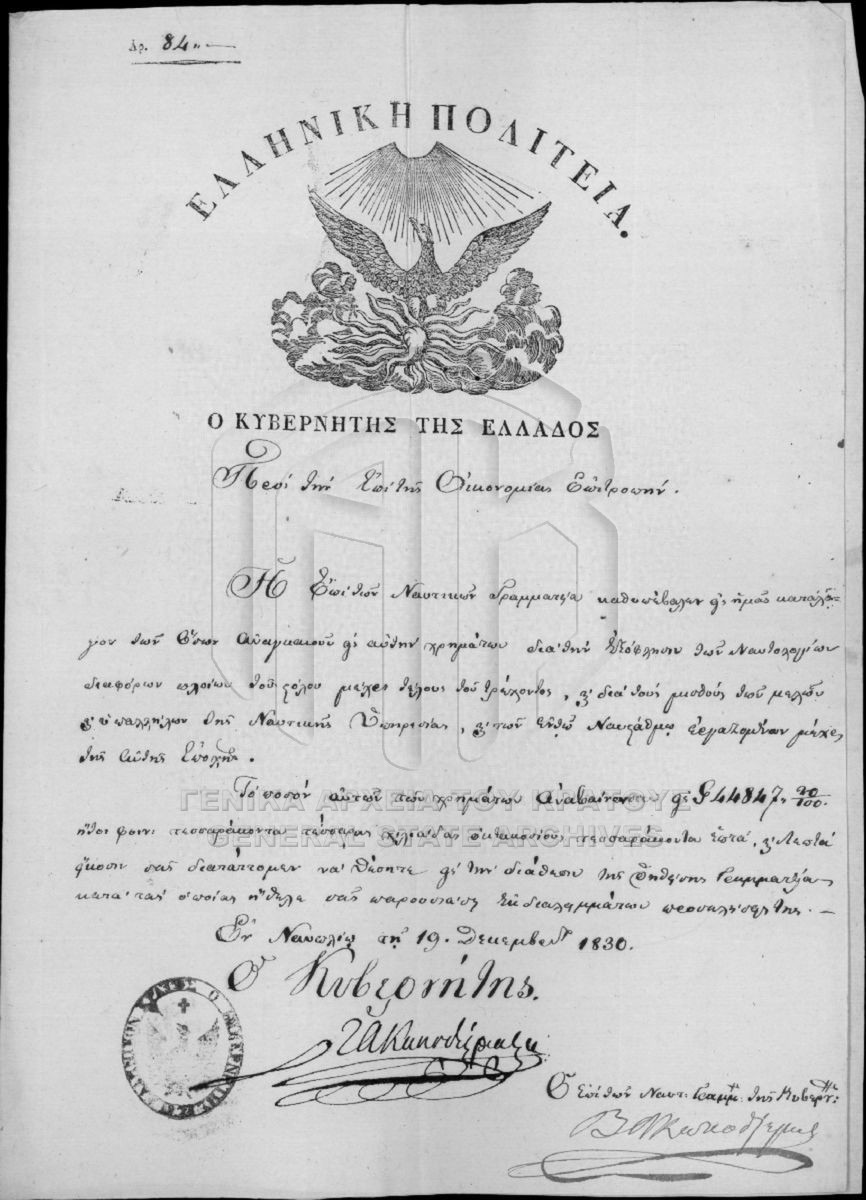 Ἀρ. 84.
ΕΛΛΗΝΙΚΗ ΠΟΛΙΤΕΙΑ.
Ο ΚΥΒΕΡΝΗΤΗΣ ΤΗΣ ΕΛΛΑΔΟΣ
Πρὸς τὴν Ἐπὶ τῆς Οἰκονομίας Ἐπιτροπήν.
Ἡ Ἐπὶ τῶν Ναυτικῶν Γραμματεία καθυπέβαλεν εἰς ἡμᾶς κατάλο-
γον τῶν ὅσων ἀναγκαιοῦν εἰς αὐτὴν χρημάτων διὰ τὴν ἐξόφλησιν τῶν Ναυτολογίων
διαφόρων πλοίων τοῦ στόλου μέχρι τέλους τοῦ τρέχοντος, καὶ διὰ τοὺς μισθοὺς τῶν μελῶν
καὶ ὑπαλλήλων τῆς Ναυτικῆς Ὑπηρεσίας, καὶ τῶν ἐν τῷ Ναυστάθμῳ ἐργαζομένων μέχρι
τῆς αὐτῆς ἐποχῆς.
Τὸ ποσὸν αὐτῶν τῶν χρημάτων ἀναβαίνουσιν εἰς 44847, 20/100.
ἤτοι φοίνι: τεσσαράκοντα τέσσαρας χιλιάδας ὀκτακοσίους τεσσαράκοντα ἑπτὰ, καὶ λεπτὰ
εἴκοσιν σᾶς διατάττομεν νὰ θέσητε εἰς τὴν διάθεσιν τῆς Γραμματείας
κατὰ τὰς ὁποίας ἤθελε σᾶς παρουσιάσει ἐκ διαλειμμάτων προσκλήσεις της.
Ἐν Ναυπλίῳ τῇ 19. Δεκεμβρίου 1830.
Ὁ Κυβερνήτης.
Ι. Α. Καποδίστριας
Ὁ ἐπὶ τῶν Ναυτ: Γραμμ: τῆς Κυβερν:
ΓΕΝΙΚΑ ΑΡΧΕΙΑ ΤΟΥ ΚΡΑΤΟΥΣ
GENERAL STATE ARCHIVES